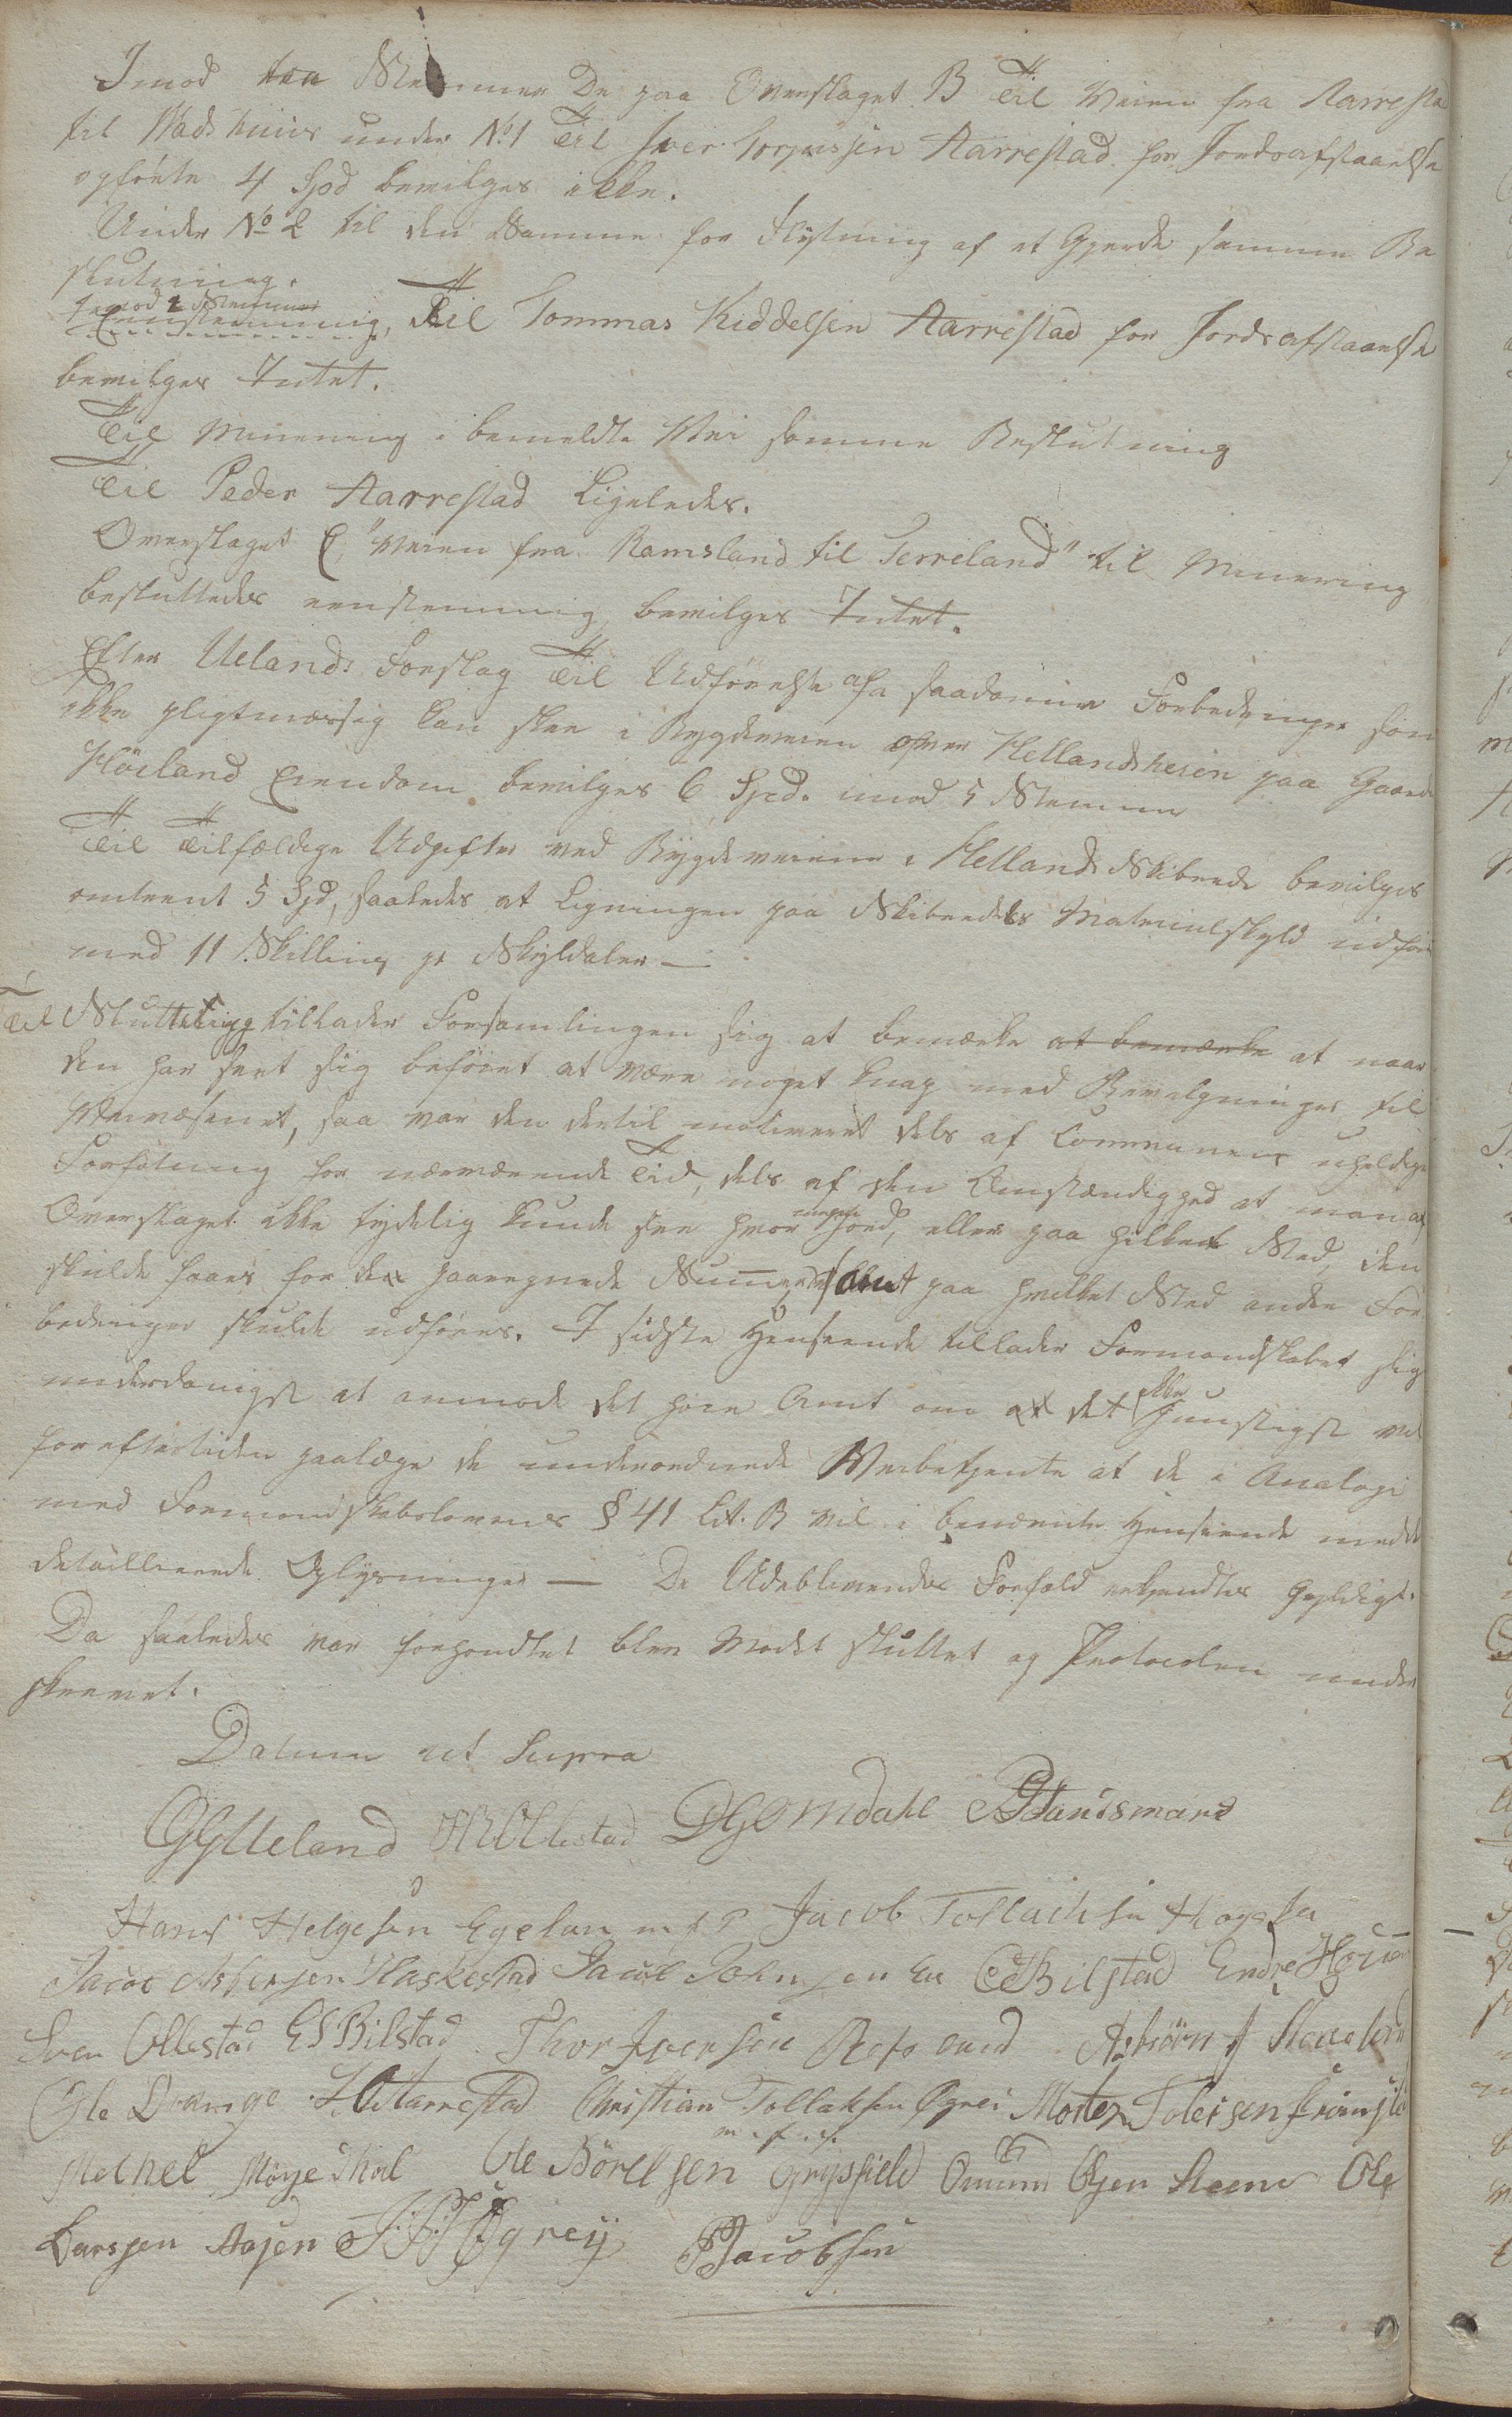 Imod tva Stemmer De paa Overslaget B Til Veien fra Aarrestad
til Vadshuus under No 1 Til Iver Torjussen Aarrestad for Jordsafstaaelse
opførte 4 Spd bevilges ikke.
Under No 2 til den Samme for Flytning af et Gjerde samme Be
slutning.
Imod 2 Stemmer
Eenstemmig, Til Tommas Kiddelsen Aarrestad for Jordsafstaaelse
bevilges Intet.
Til Minering i bemeldte Vei samme Beslutning
Til Peder Aarrestad Ligeledes.
Overslaget C, "Veien fra Ramsland til Terreland" til Minering
besluttedes eenstemmig bevilges Intet.
Efter Uelands Forslag Til Udførelse af saadanne Forbedringer som
ikke pligtmæssig kan skee i Bygdeveien over Hellandsheien paa Gaarden
Höiland Eiendom bevilges 6 Spd. imod 5 Stemmer
Til Tilfældige Udgifter ved Bygdeveiene i Hellands Skibrede bevilges
omtrent 5 Spd, saaledes at Ligningen paa Skibredets Matrikulskyld udføres
med 11 Skilling pr Skyldaler —
Til Sluttning tillader Forsamlingen sig at bemærke at bemærke at naar
den har seet sig beføiet at være noget knap med Bevilgninger til
Veivæsenet, saa var den dertil motiveret dels af Communens uheldige
Forfatning for nærværende Tid, dels af den Omstændighed at man af
Overslaget ikke tydelig kunde see hvor megen Jord, eller paa hvilket Sted, den
skulde haves for de paaregnede Summer, samt paa hvilket Sted andre For
bedringer skulde udføres. I sidste Henseende tillader Formandskabet sig
underdanigst at anmode det høie Amt om at det ikke gunstigst vil
for eftertiden paalægge de underordnede Veibetjente at de i Analogi
med Formandskabslovens § 41 Lit. B vil i benævnte Henseende meddele
detaillerede Oplysninger — De Udeblevendes Forfald erkjendtes gyldigt.
Da saaledes var forhandlet blev Mødet sluttet og Protocolen under
skrevet.
Datum ut Supra
OGUeland OROllestad DGOmdahl PHandsmark
Hans Helgesen Egelan m f P Jacob Tollachsen Haga
Jacob Asbersen Haskestad Jacob Johnsen Eie CBilstad Endre
Sven Ollestad ESBilstad Thor Iversen Refsland Asbiørn
Ole Drange Aarrestad Christian Tollaksen Øgrei Morten Tolleisen
m. f. P.
Michel Möge Skal Ole Börelsen Grysfield Omum Olsen Steene Ole
Larssen Aasen Øgreÿ PJacobsen